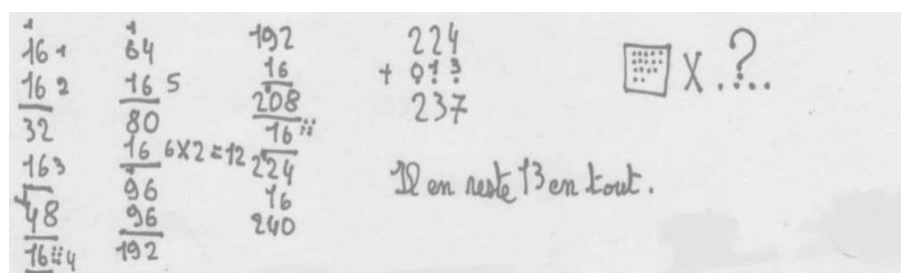 16 1
16 2
32
16 3
48
16 4
64
16 5
80
16 6x2=12
96
96
192
192
16
208
16
224
16
240
224
+ 013
237
X .?...
Il en reste 13 en tout.